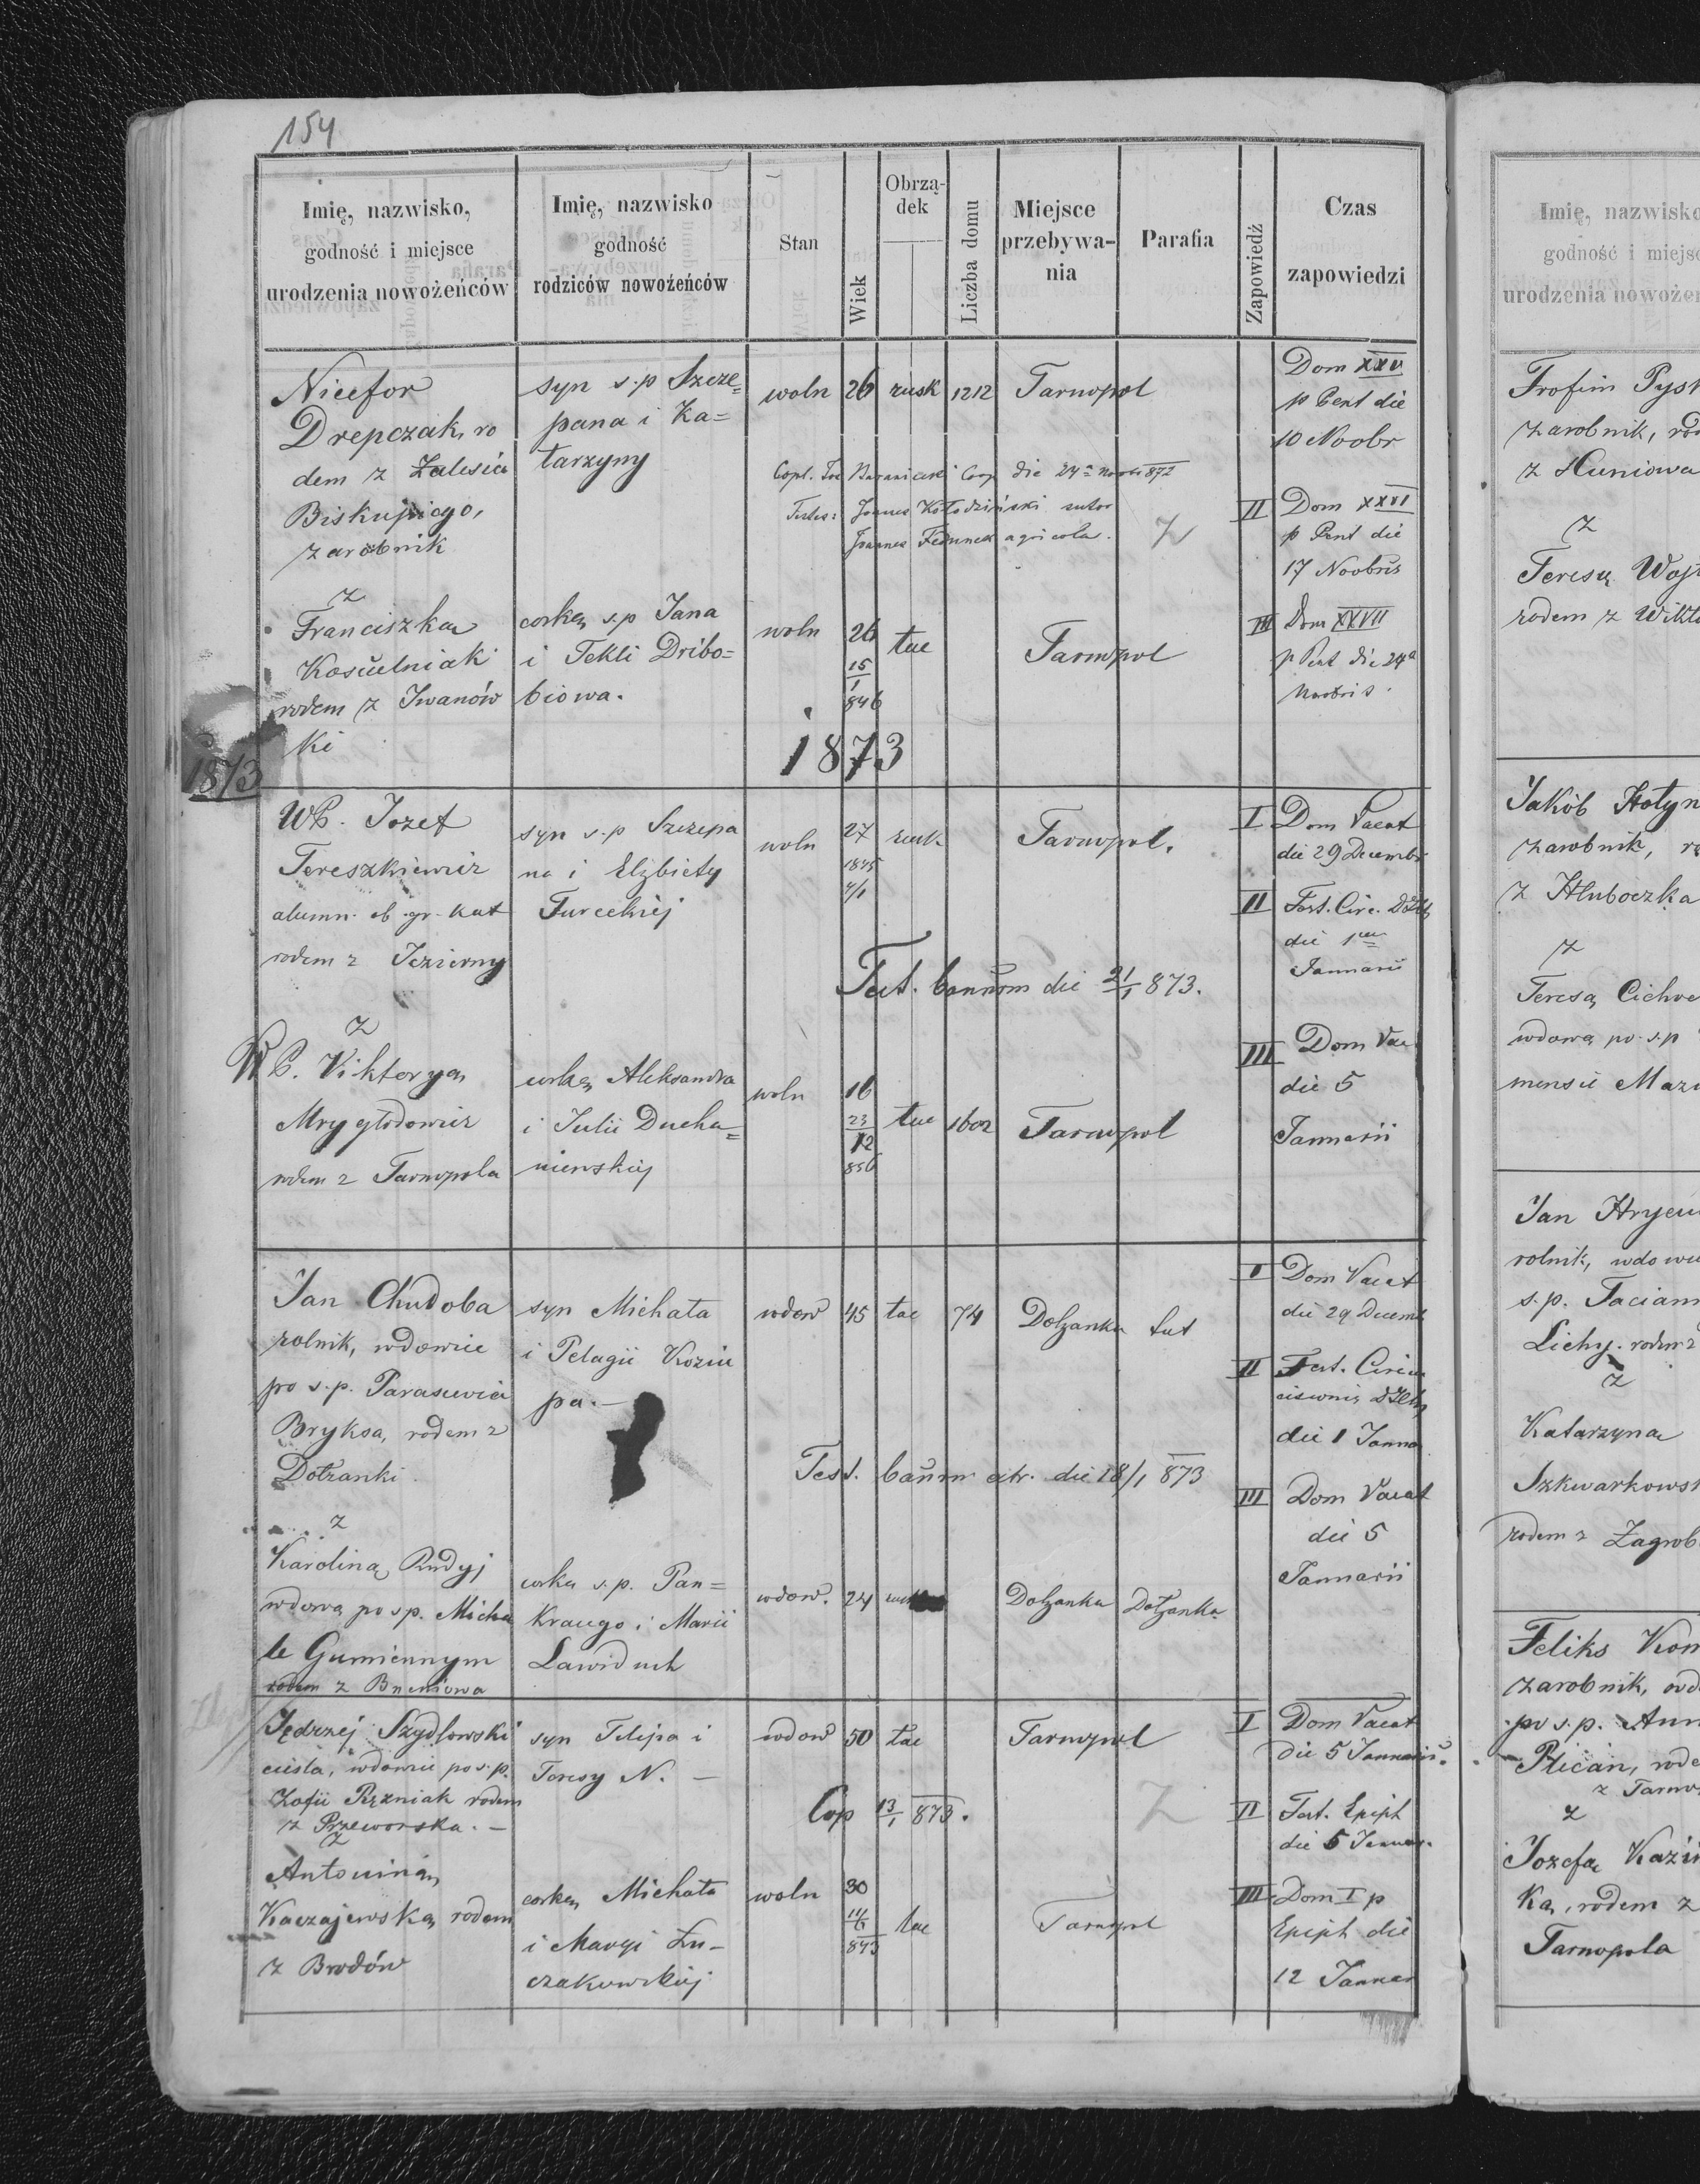 154
Imię, nazwisko,
godność i miejsce
urodzenia nowożeńców
Imię, nazwisko
godność
rodziców nowożeńców
Stan
Wiek
Obrzą-
dek
Liczba domu
Miejsce
przebywa-
nia
Parafia
Zapowiedź
Czas
zapowiedzi
Nicefor
Drepczak, ro
dem z Zalesia
Biskupiego,
zarobnik
syn s.p Szcze=
pana i Ka=
tarzyny
woln 26 rusk 1212 Tarnopol
Dom XXV
p Pent die
10 Noobr
Copl. Coop die 24a Noobr 872
Testes: Joannes Kołodziński sutor
Joannes agricola.
II Dom XXVI
p Pent die
17 Noobris
z
Franciszka
Kościelniak
rodem z Iwanów
ki
corka s.p Jana
i Tekli Dribo=
biowa.
woln 26 tac Tarnopol
15
1
846
III Dom XXVII
p Pent die 24a
Noobris.
1873
1873
WP. Jozef
Tereszkiewicz
alumn. ob. gr. kat
rodem z Jezierny
syn s.p Szczepa
na i Elżbiety
Tureckiej
woln 27 rusk. Tarnopol.
1845
4/1
I Dom Vacat
die 29 Decembr
II Fest. Circ.
die 1
Januarii
Test. bannorm die 21/1 873.
z
WP. Viktorya
Mrygłodowicz
rodem z Tarnopola
corka Aleksandra
i Julii Ducha=
niewskiej
woln 16 tac 1602 Tarnopol
23
12
856
III Dom Vac
die 5
Januarii
Jan Chudoba
rolnik, wdowiec
po s.p. Parascevia
Bryksa, rodem z
Dołżanki
syn Michała
i Pelagii Koziu
pa.—
wdow 45 tac 74 Dołżanka tut
I Dom Vacat
die 29 Decemb
II Fest. Circum
die 1 Janua
Test. bannor die 18/1 873
III Dom Vacat
die 5
Januarii
z
Karolina Rudyj
wdowa po sp. Micha
le Gumiennym
rodem z
corka s.p. Pan=
kracego i Marii
wdow. 24 Dołżanka Dołżanka
Jędrzej Szydłowski
cieśla, wdowiec po s.p.
Zofii rodem
z Przeworska.—
syn Filipa i
Teresy N. —
wdow 50 tac Tarnopol
I Dom Vacat
die 5 Januarii.
Cop 13/1 873.
II Fest. Epiph
die 6 Januar.
z
Antonina
Kaczajewska rodem
z Brodów
corka Michała
i Maryi Łu-
czakowskiej
woln 30 tac Tarnopol
843
III Dom I p
Epiph die
12 Januar
Imię, nazwisko
godność i miejsc
urodzenia nowożeń
Trofim Pysk
zarobnik, rod
z Huniowa
z
Teresą Wojt
rodem z Wikto
Jakób Hołyn
zarobnik, ro
z Hłuboczka
z
Teresą Cichoc
wdową po s.p
Jan Hryciu
rolnik, wdowie
s.p. Taciann
Lichy. rodem z
z
Katarzyna
Szkwarkowsk
rodem z Zagrob
Feliks Kom
zarobnik, wd
po s.p. Ann
rode
z Tarno
z
Jozefa Kazi
ka, rodem z
Tarnopola